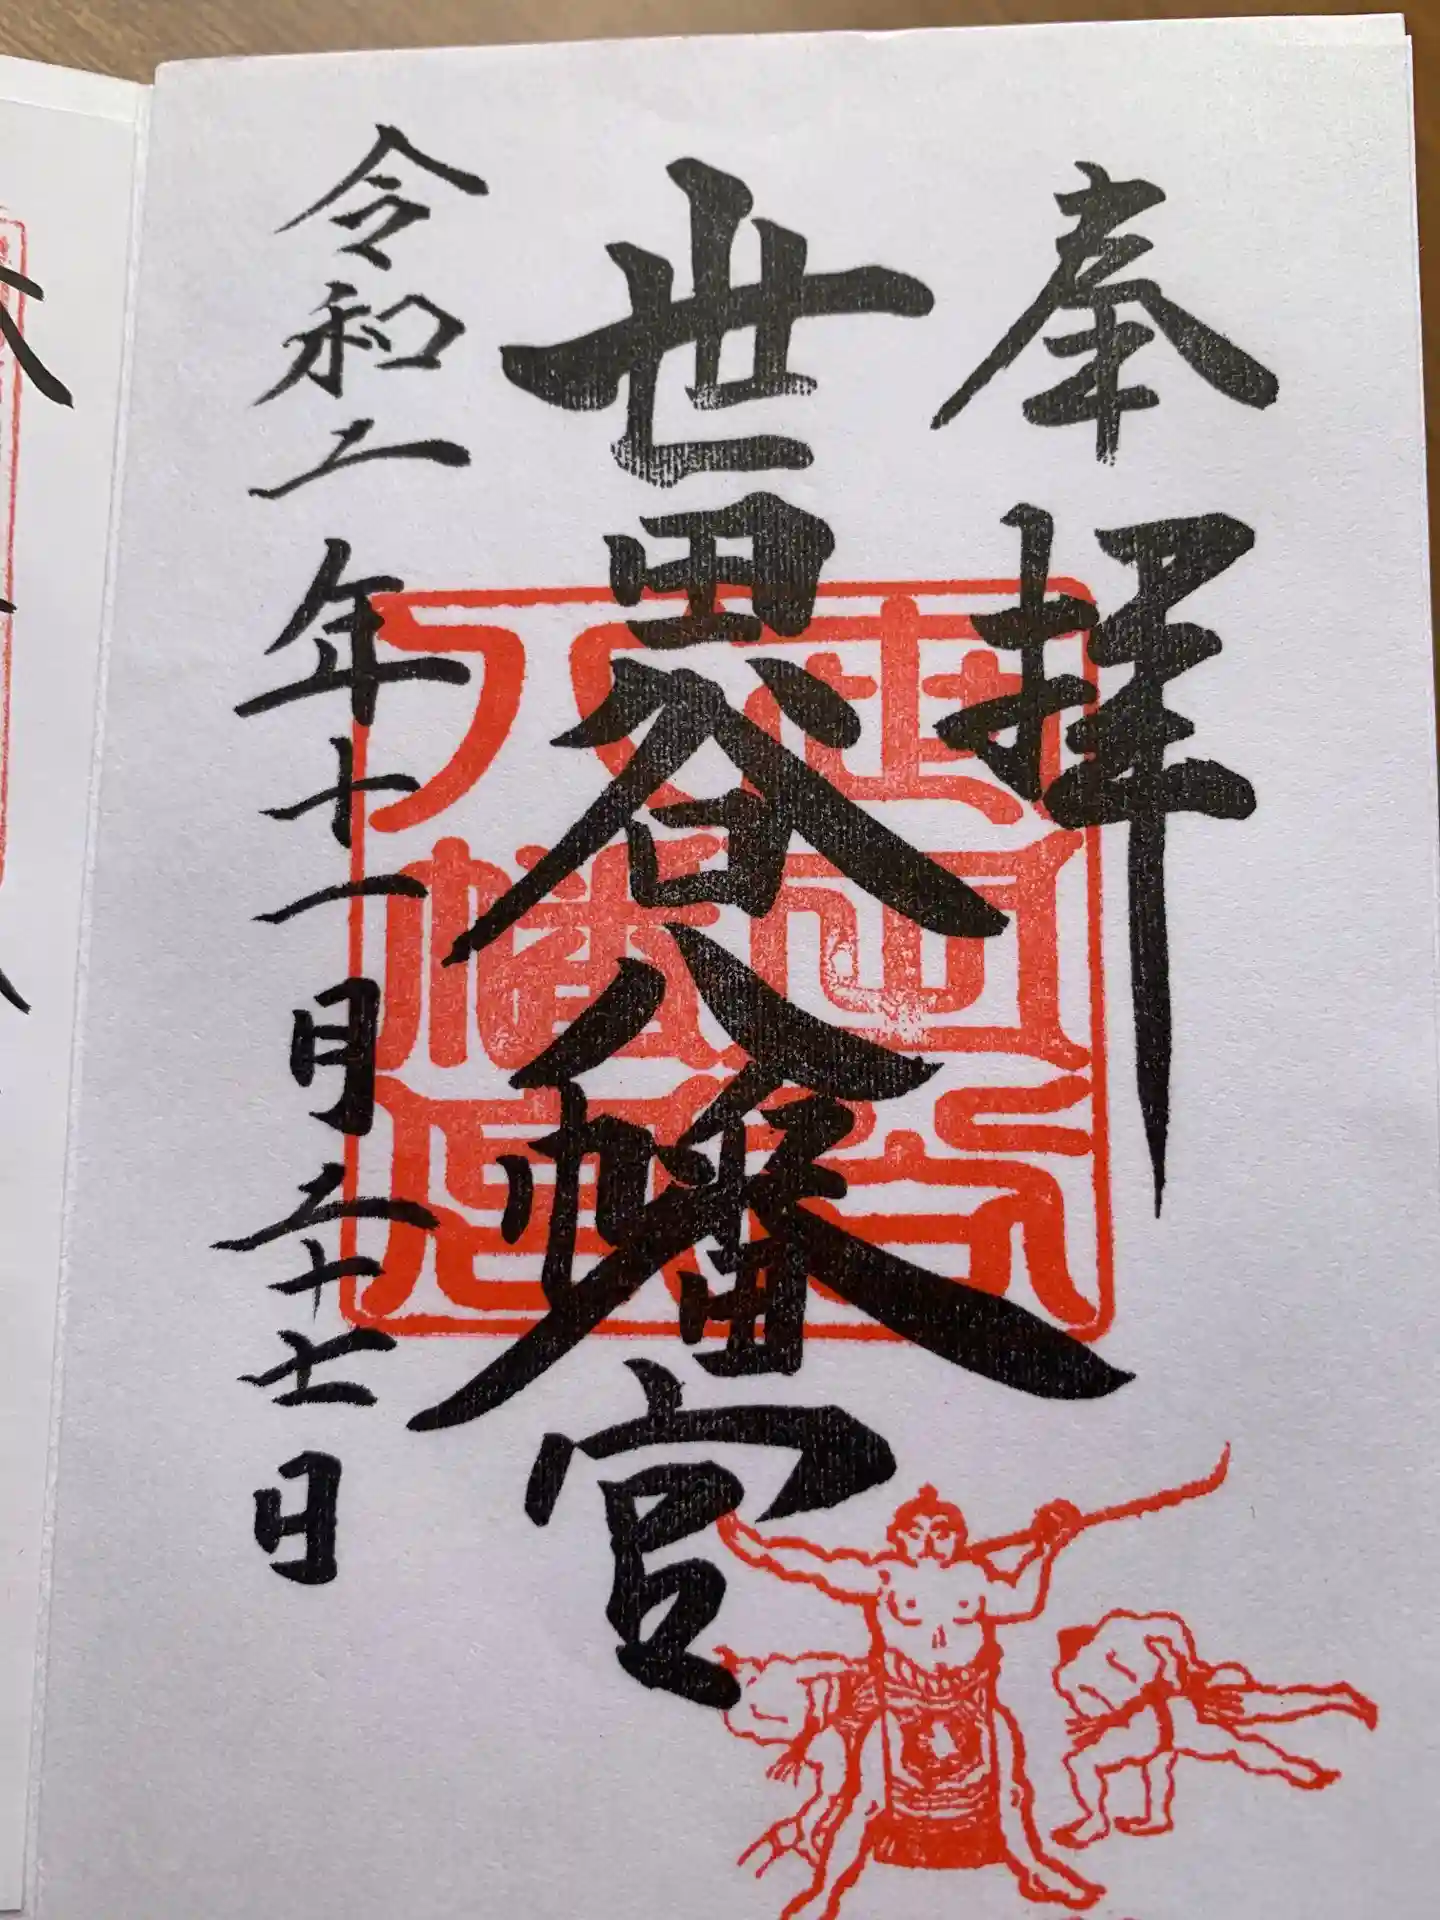 奉拝
世田谷八幡宮
世田谷
八幡宮
令和二年十一月二十七日